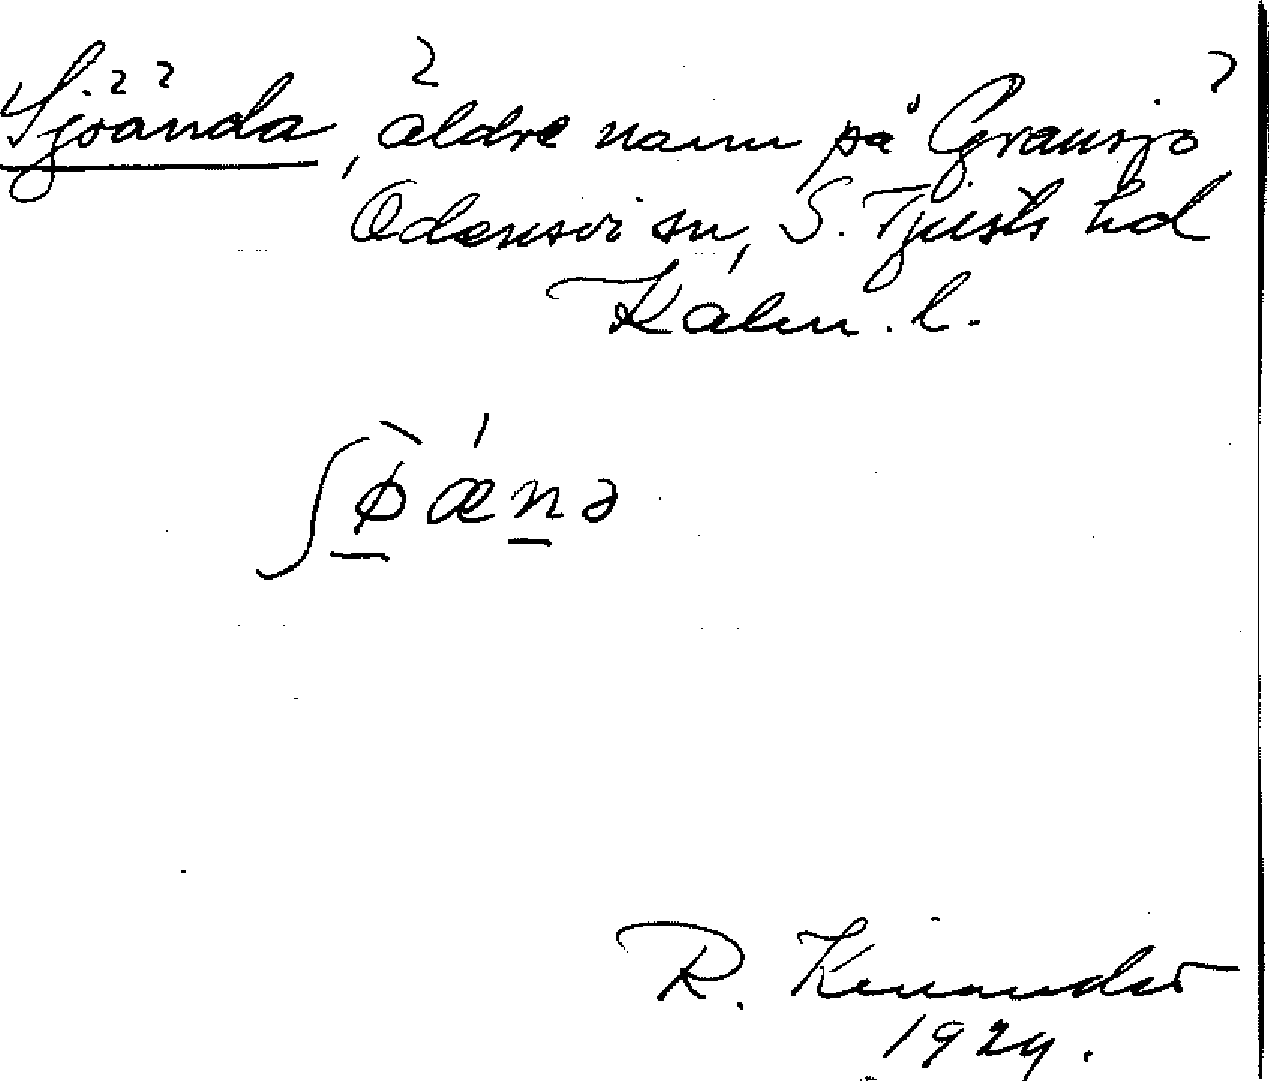 Sjöända, äldre namn på Gransjö
Odensvi sn, S. Tjusts hd
Kalm. l.
ʃø̀ǽnə
R. Kinander
1929.